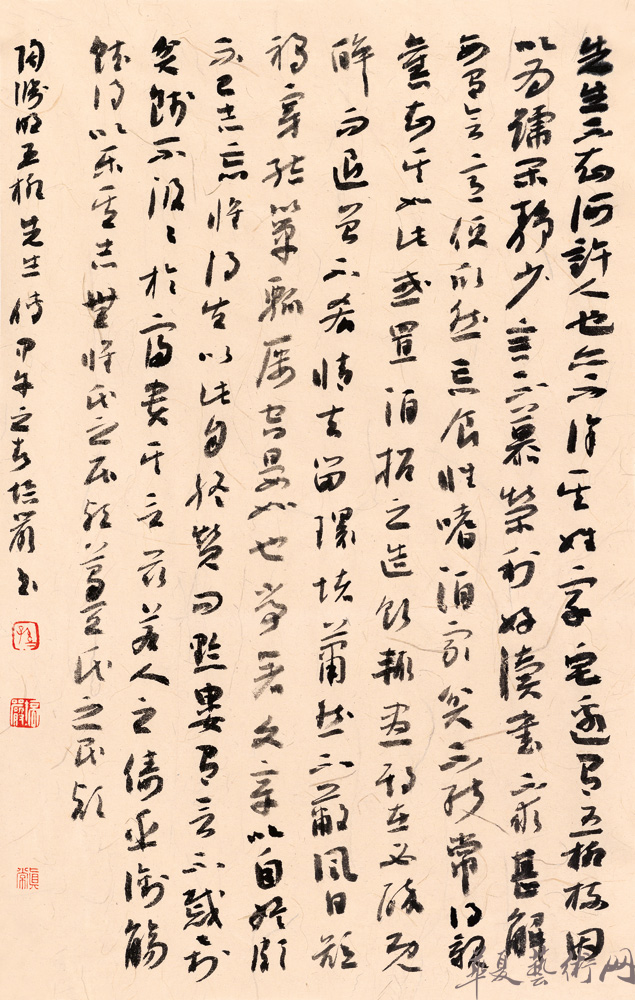 先生不知何許人也亦不詳其姓字宅邊有五柳樹因
以為號閑靜少言不慕榮利好讀書不求甚解
每有會意便欣然忘食性嗜酒家貧不能常得親
舊知其如此或置酒招之造飲輒盡期在必醉既
醉而退曾不吝情去留環堵蕭然不蔽風日短
褐穿結簞瓢屢空晏如也常著文章以自娛頗
示己志忘懷得失以此自終贊曰黔婁有言不戚戚於
貧賤不汲汲於富貴其言茲若人之儔乎銜觴
賦詩以樂其志無懷氏之民歟葛天氏之民歟
陶淵明五柳先生傳甲午之春書
華夏藝術网